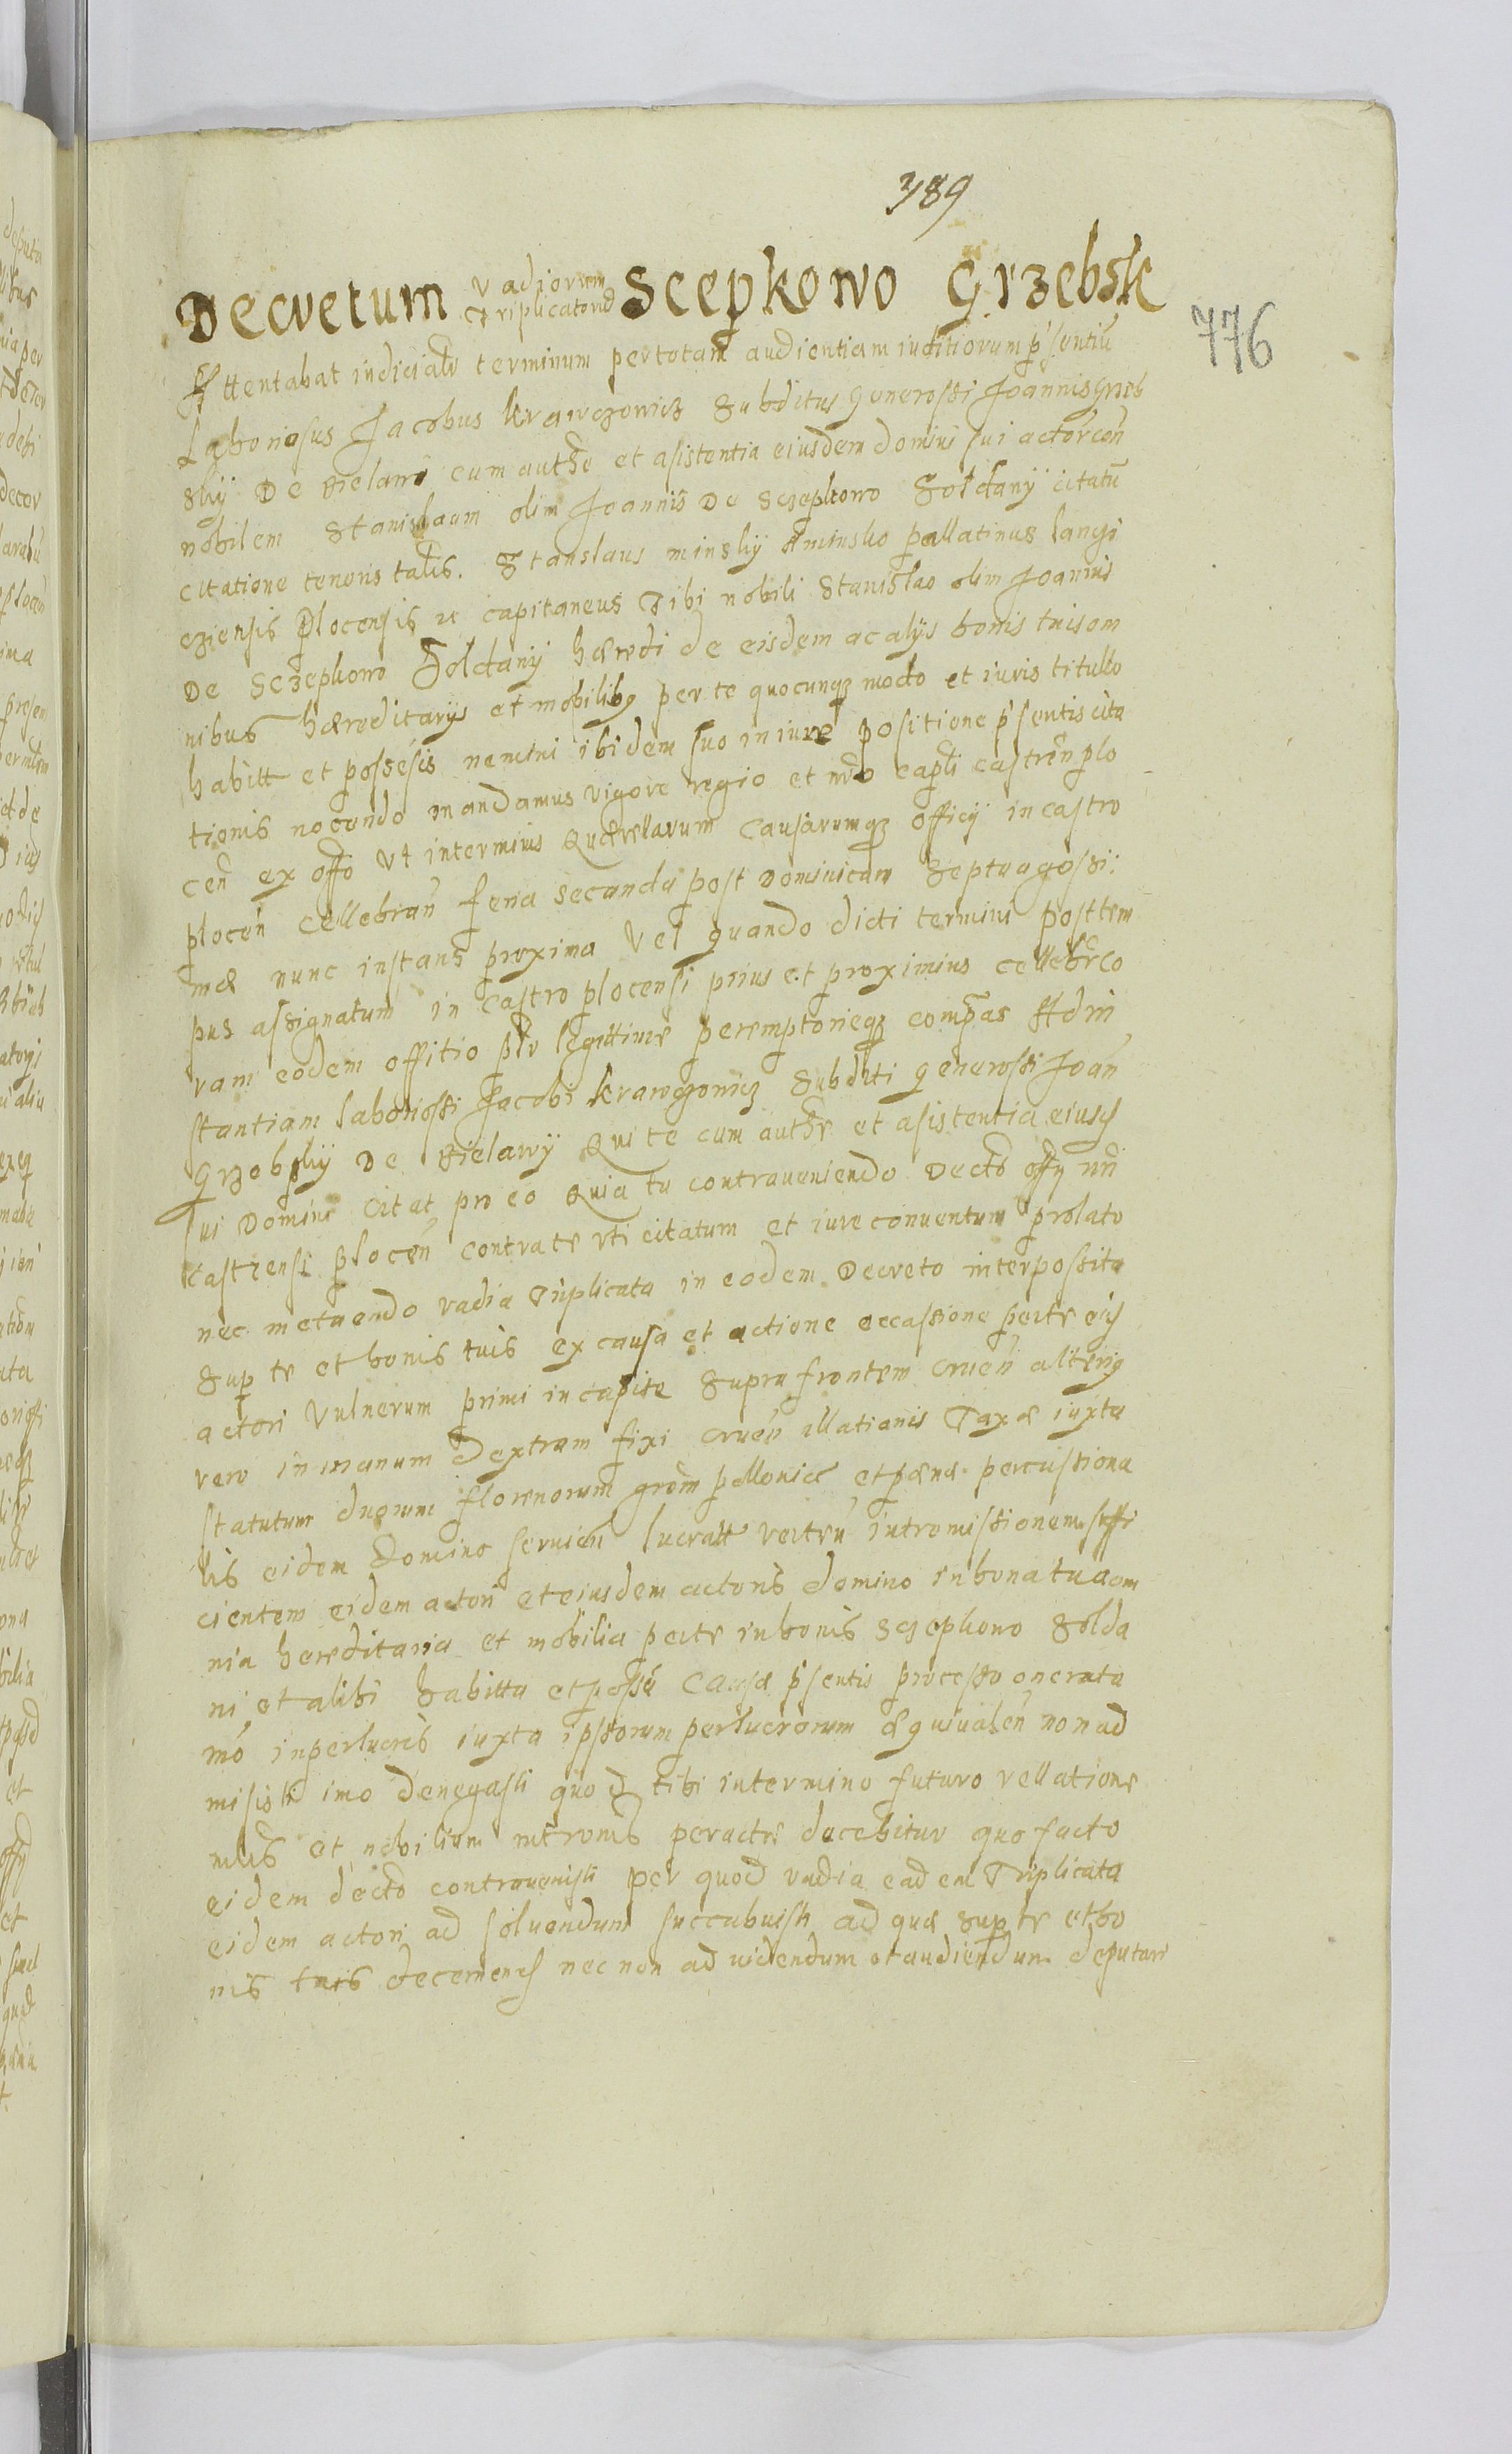 389
776
Decretum vadiorum triplicatorum Scepkowo Grzebsk
Attentabat iudicialr terminum per totam audientiam iuditiorum p'sentiu
Laboriosus Jacobus Krawczowicz Subditus Generossi Joannis Grzeb
skÿ De Bielawi cum authe et asistentia eiusdem domini sui actor con
nobilem Stanislaum olim Joannis De Sczepkowo Soldanÿ citatu
citatione tenoris talis. Stanslaus minskÿ de minsko pallatinus lanci
ciensis Plocensis et capitaneus Tibi nobili Stanislao olim Joannis
De Sczepkowo Soldanÿ hæredi de eisdem ac alÿs bonis tuis om
nibus hæreditarÿs et mobilibq per te quocunqz modo et iuris titullo
habitt et possesis nemini ibidem suo in iure positione p'sentis cita
tionis nocendo mandamus vigore regio et nro capli castren plo
cen ex offo vt in terminis Querellarum Causarumqz officÿ in castro
plocen cellebran feria secunda post Dominicam Septuagessi:
mæ nunc instans proxima Vel quando dicti termini post tem
pus assignatum in Castro plocensi prius et proximius cellebr co
ram eodem offitio plr legittime peremptorieqz compas Ad in
stantiam laboriossi Jacobi Krawczowicz Subditi generossi Joan
Grzebskÿ De Bielawÿ Qui te cum authe et asistentia eiusd
sui Domini citat pro eo Quia tu contraueniendo Decto offÿ nri
castrensi plocen contra te vti citatum et iure conuentum prolato
nec metuendo vadia Triplicata in eodem Decreto interpossita
Sup te et bonis tuis ex causa et actione occassione per te eid
actori Vulnerum primi in capite Supra frontem cruen alterig
vero in manum dextram fixi cruen illationis Taxæ iuxta
statutum duorum florenorum grom pollonice et pænæ percussiona
lis eidem Domino seruien lucratt veltru intromissionem suffi
cientem eidem actori et eiusdem actoris domino in bona tua om
nia hereditaria et mobilia per te in bonis Sczepkowo Solda
ni et alibi habitta et possa causæ p'sentis processo onerata
mo in perlucris iuxta ipsorum perlucrorum æquiualen non ad
misisti imo denegasti quod tibi in termino futuro rellatione
mlis et nobilium mtronis peractæ docebitur quo facto
eidem decto contrauenisti per quod vadia eadem Triplicata
eidem actori ad soluendum succubuisti ad quæ Sup te et bo
nis tuis decernend nec non ad videndum et audiendum deputari